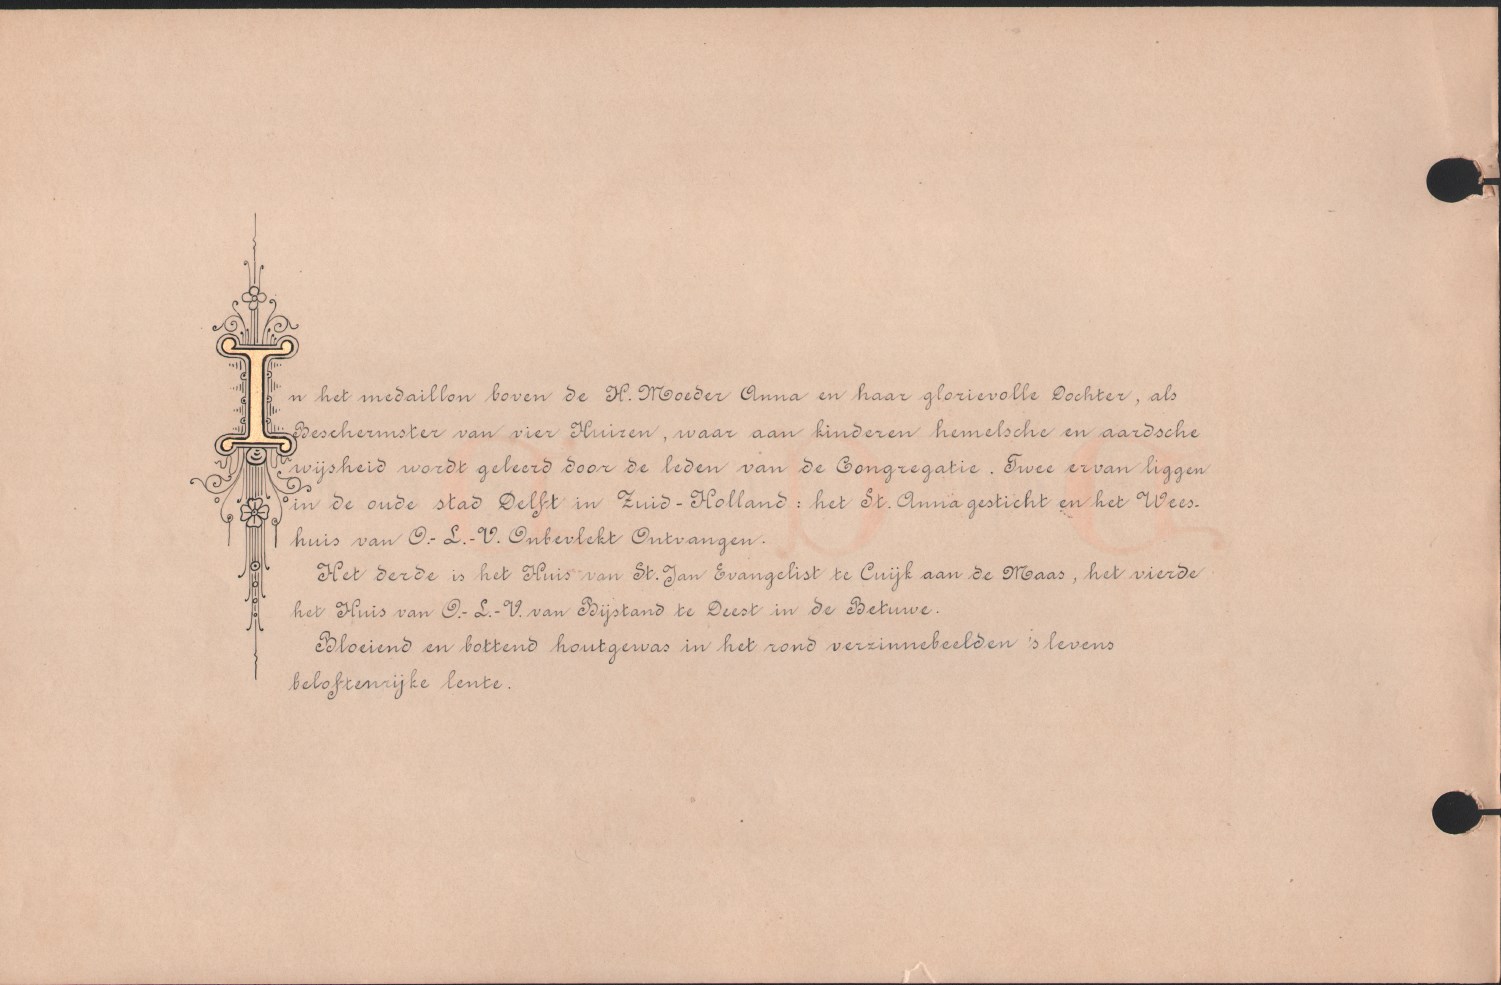 In het medaillon boven de H. Moeder Anna en haar glorievolle Dochter, als
Beschermster van vier Huizen, waar aan kinderen hemelsche en aardsche
wijsheid wordt geleerd door de leden van de Congregatie. Twee ervan liggen
in de oude stad Delft in Zuid-Holland: het St. Anna gesticht en het Wees-
huis van O.-L.-V. Onbevlekt Ontvangen.
Het derde is het Huis van St. Jan Evangelist te Cuijk aan de Maas, het vierde
het Huis van O.-L.-V. van Bijstand te Deest in de Betuwe.
Bloeiend en bottend houtgewas in het rond verzinnebeelden 's levens
beloftenrijke lente.